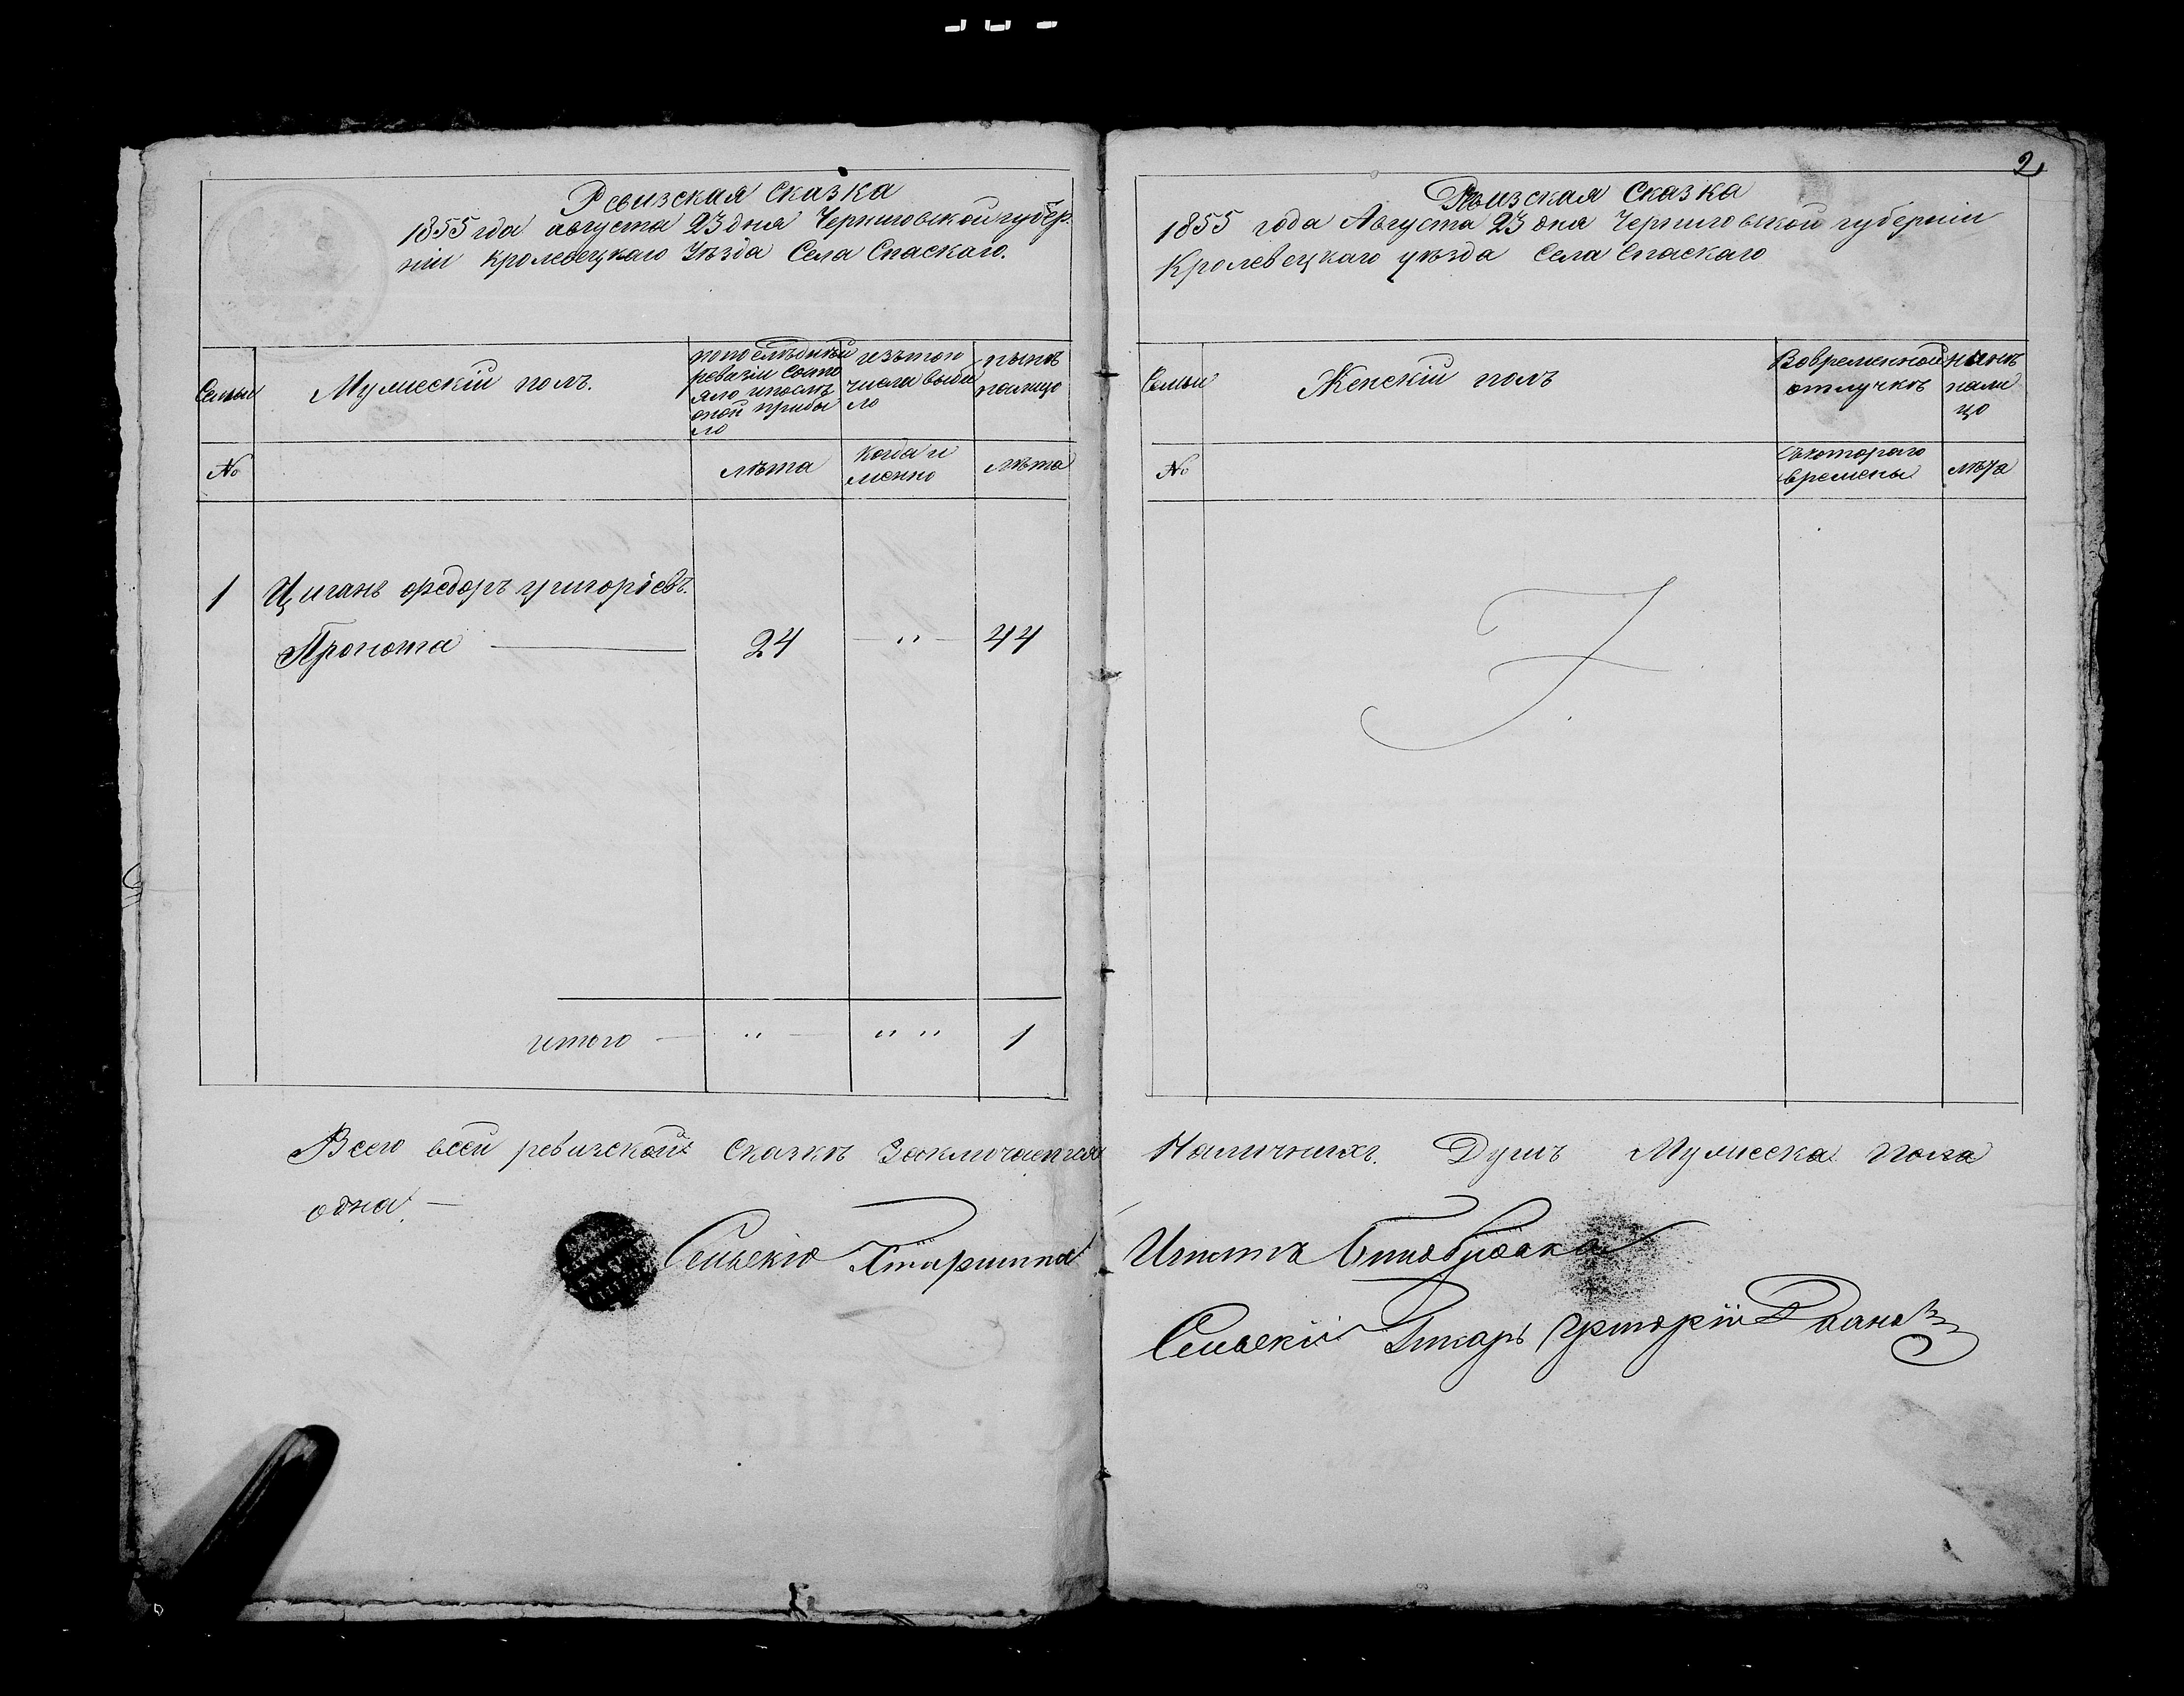 Ревизская Сказка
1855 года августа 23 дня Черниговской губер.
ніи кролевецкаго Уѣзда Села Спаскаго.
Семьи
Мужескій полъ.
попослѣдней
ревизіи состо
яло ипослѣ
оной прибы
ло
изътого
числа выбы
ло
нынѣ
налицо
№
лѣта
когда и
менно
лѣта
1 Циганъ федоръ григоріевъ.
Пропота 24 " 44
итого " " " 1
2
Ревизская Сказка
1855 года Августа 23 дня Черниговской губерніи
Кролевецкаго уѣзда Села Спаскаго
Семьи
Женскій полъ
Вовременной
отлучкѣ
нынѣ
нали
цо
№
Съкотораго
времены
лѣта
Всего всей ревизской Сказкѣ Заключается Наличнихъ Душъ Мужеска пола
одна.
Сельскій Старшина Игнатъ
Сельскій Писарь Григорій